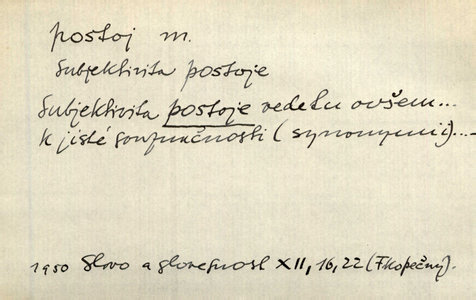 postoj m.
Subjektivita postoje
Subjektivita postoje vede tu ovšem...
k jisté souznačnosti (synonymii)...
1950 Slovo a slovesnost XII, 16, 22 (F. Kopečný).